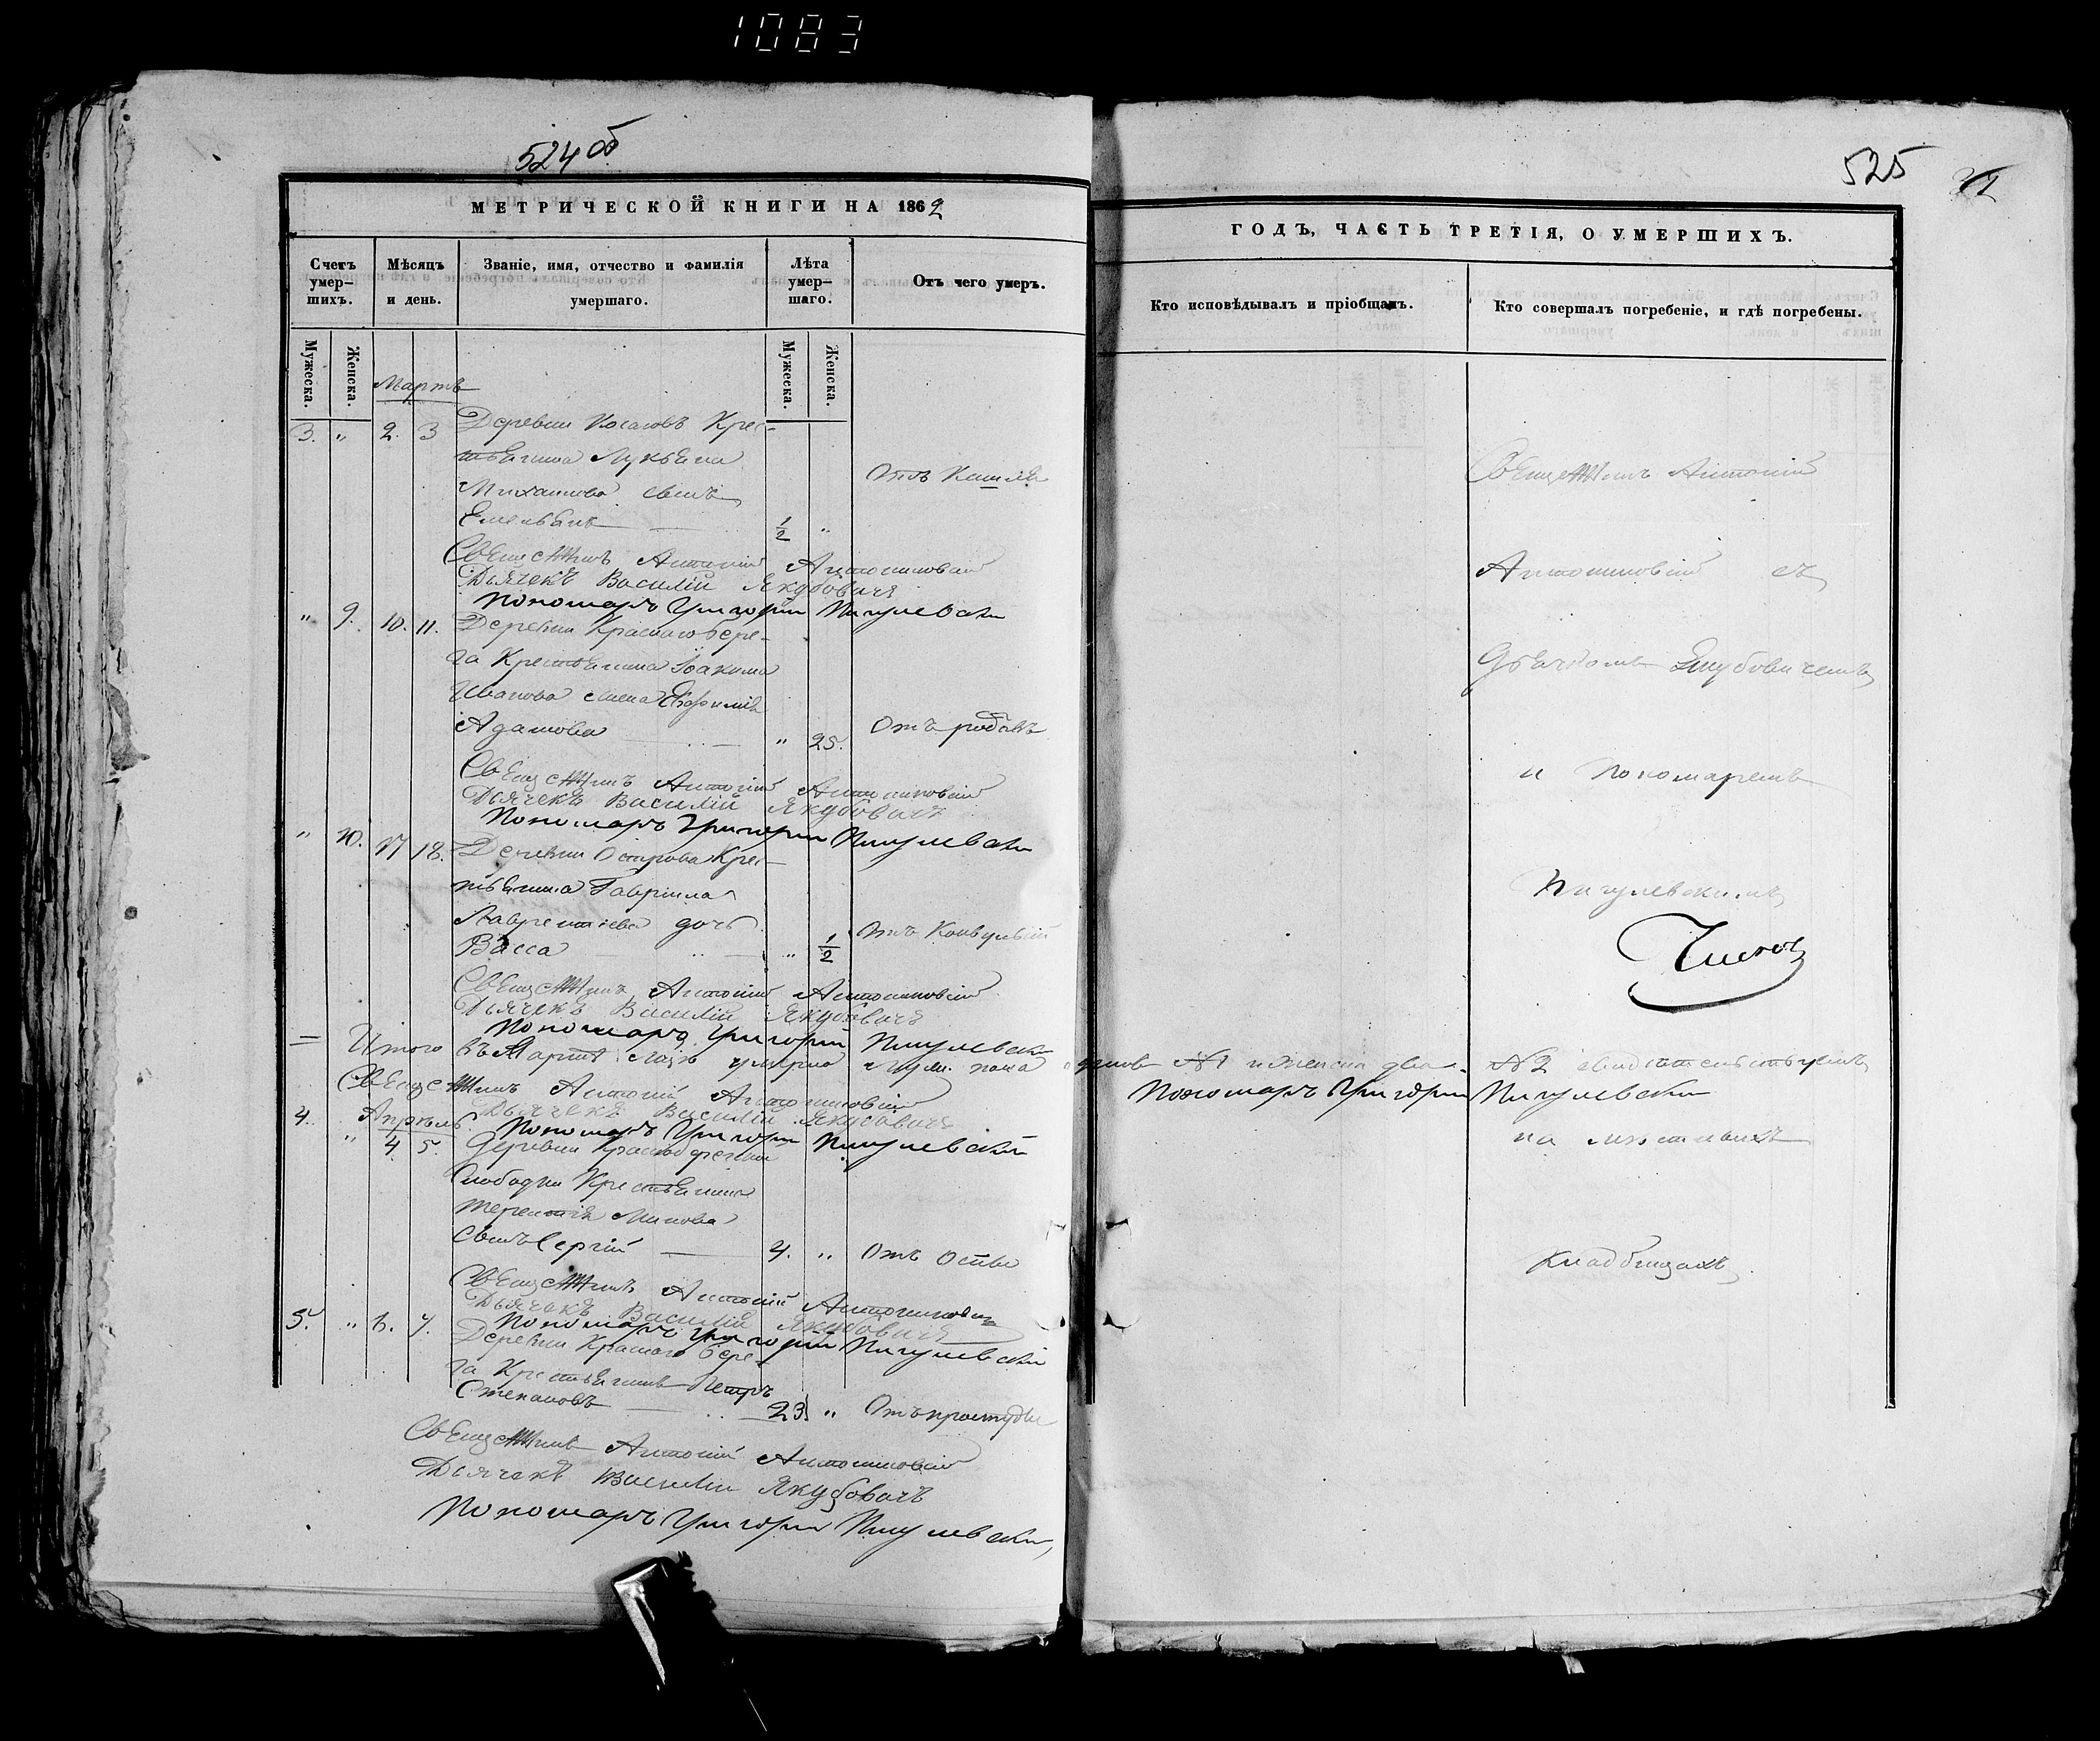 1083
524 об
МЕТРИЧЕСКОЙ КНИГИ НА 1862
Счетъ умер-шихъ.
Мѣсяцъ и день.
Званіе, имя, отчество и фамилія умершаго.
Лѣта умер-шаго.
Отъ чего умеръ.
Мужеска.
Женска.
Мужеска.
Женска.
Мартъ
3. " 2. 3 Деревни Косаковъ Крес-
тьянина Лукьяна
Михайлова сынъ
Отъ Кашля
Емельянъ 1/2 "
Священникъ Антоній Антоновскій
Дьячекъ Василій Якубовичъ
Пономарь Григорій Пигулевскій
" 9. 10. 11. Деревни Краснаго бере-
га Крестьянина Іоакима
Иванова жена Евфимія
Адамова " 25. Отъ родовъ
Священникъ Антоній
Дьячекъ Василій Якубовичъ
Пономарь Григорій Пигулевскій
" 10. 17 18. Деревни Острова Крес-
тьянина Гавріила
Лаврентіева дочь
Васса " 1/2 Отъ Конвульсій
Священникъ Антоній
Дьячекъ Василій Якубовичъ
Пономарь Григорій Пигулевскій
Итого въ Мартѣ умерло муж. пола
Священникъ Антоній
Дьячекъ Василій Якубовичъ
Пономарь Григорій Пигулевскій
Апрѣль
4. " 4 5. Деревни
Слободки Крестьянина
Терентія
сынъ Сергій 4. " Отъ Оспы
Священникъ Антоній
Дьячекъ Василій Якубовичъ
Пономарь Григорій Пигулевскій
5. " 6. 7. Деревни Краснаго бере-
га Крестьянинъ Петръ
Степановъ 23 " Отъ простуды
Священникъ Антоній
Дьячекъ Василій Якубовичъ
Пономарь Григорій Пигулевскій
525
ГОДЪ, ЧАСТЬ ТРЕТІЯ, О УМЕРШИХЪ.
Кто исповѣдывалъ и пріобщалъ.
Кто совершалъ погребеніе, и гдѣ погребены.
Священникъ Антоній
съ
Дьячкомъ Якубовичемъ
и Пономаремъ
Пигулевскимъ
№1 и женска два №2 свидѣтельствуемъ
Пономарь Григорій Пигулевскій
на
кладбищахъ